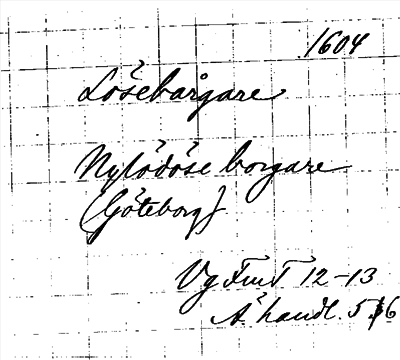 1604
Lösebårgare
Nylödöse borgare
(Göteborg)
Vg FmT 12-13
Å handl. 5 6